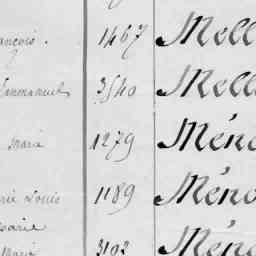 ançois. 1467 Mell
Emmanuel 3540 Mella
Marie 1279 Méno
rie Louis 1189 Méno
Marie 3102 Méno